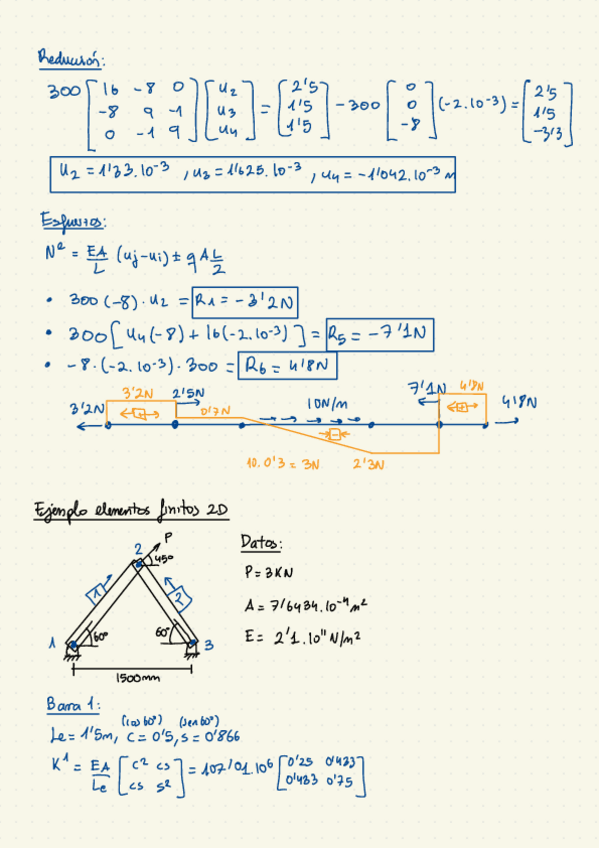 Reducción:
300 [16 -8 0; -8 9 -1; 0 -1 9] [u2; u3; u4] = [2'5; 1'5; 1'5] - 300 [0; 0; -8] (-2.10⁻³) = [2'5; 1'5; -3'3]
u2 = 1'33.10⁻³ , u3 = 1'625.10⁻³ , u4 = -1'042.10⁻³ m
Esfuerzos:
Nᵉ = EA/L (uj-ui) ± qA L/2
• 300(-8).u2 = R1 = -3'2N
• 300[u4(-8) + 16(-2.10⁻³)] = R5 = -7'1N
• -8.(-2.10⁻³).300 = R6 = 4'8N
3'2N 2'5N 7'1N 4'8N
3'2N 0'7N 10N/m 4'8N
+ - +
10.0'3 = 3N 2'3N
Ejemplo elementos finitos 2D
P
2 45º
1 2
1 60º 60º 3
1500mm
Datos:
P = 3KN
A = 7'6434.10⁻⁴ m²
E = 2'1.10¹¹ N/m²
Barra 1:
(cos60º) (sen60º)
Le = 1'5m, C = 0'5, s = 0'866
K¹ = EA/Le [c² cs; cs s²] = 107'01.10⁶ [0'25 0'433; 0'433 0'75]